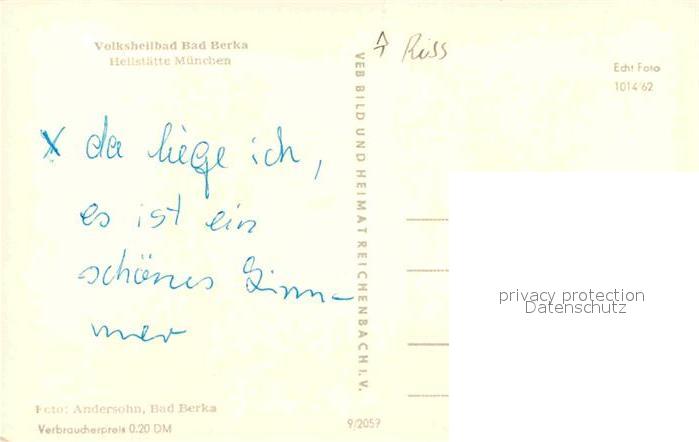 Volksheilbad Bad Berka
Heilstätte München
x da liege ich,
es ist ein
schönes Zimm-
mer
Foto: Andersohn, Bad Berka
Verbraucherpreis 0.20 DM
VEB BILD UND HEIMAT REICHENBACH I. V.
9/2059
Riss
Echt Foto
1014/62
privacy protection
Datenschutz